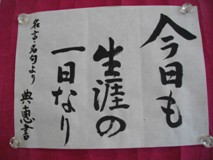 今日も
生涯の
一日なり
名言・名句より
典恵書